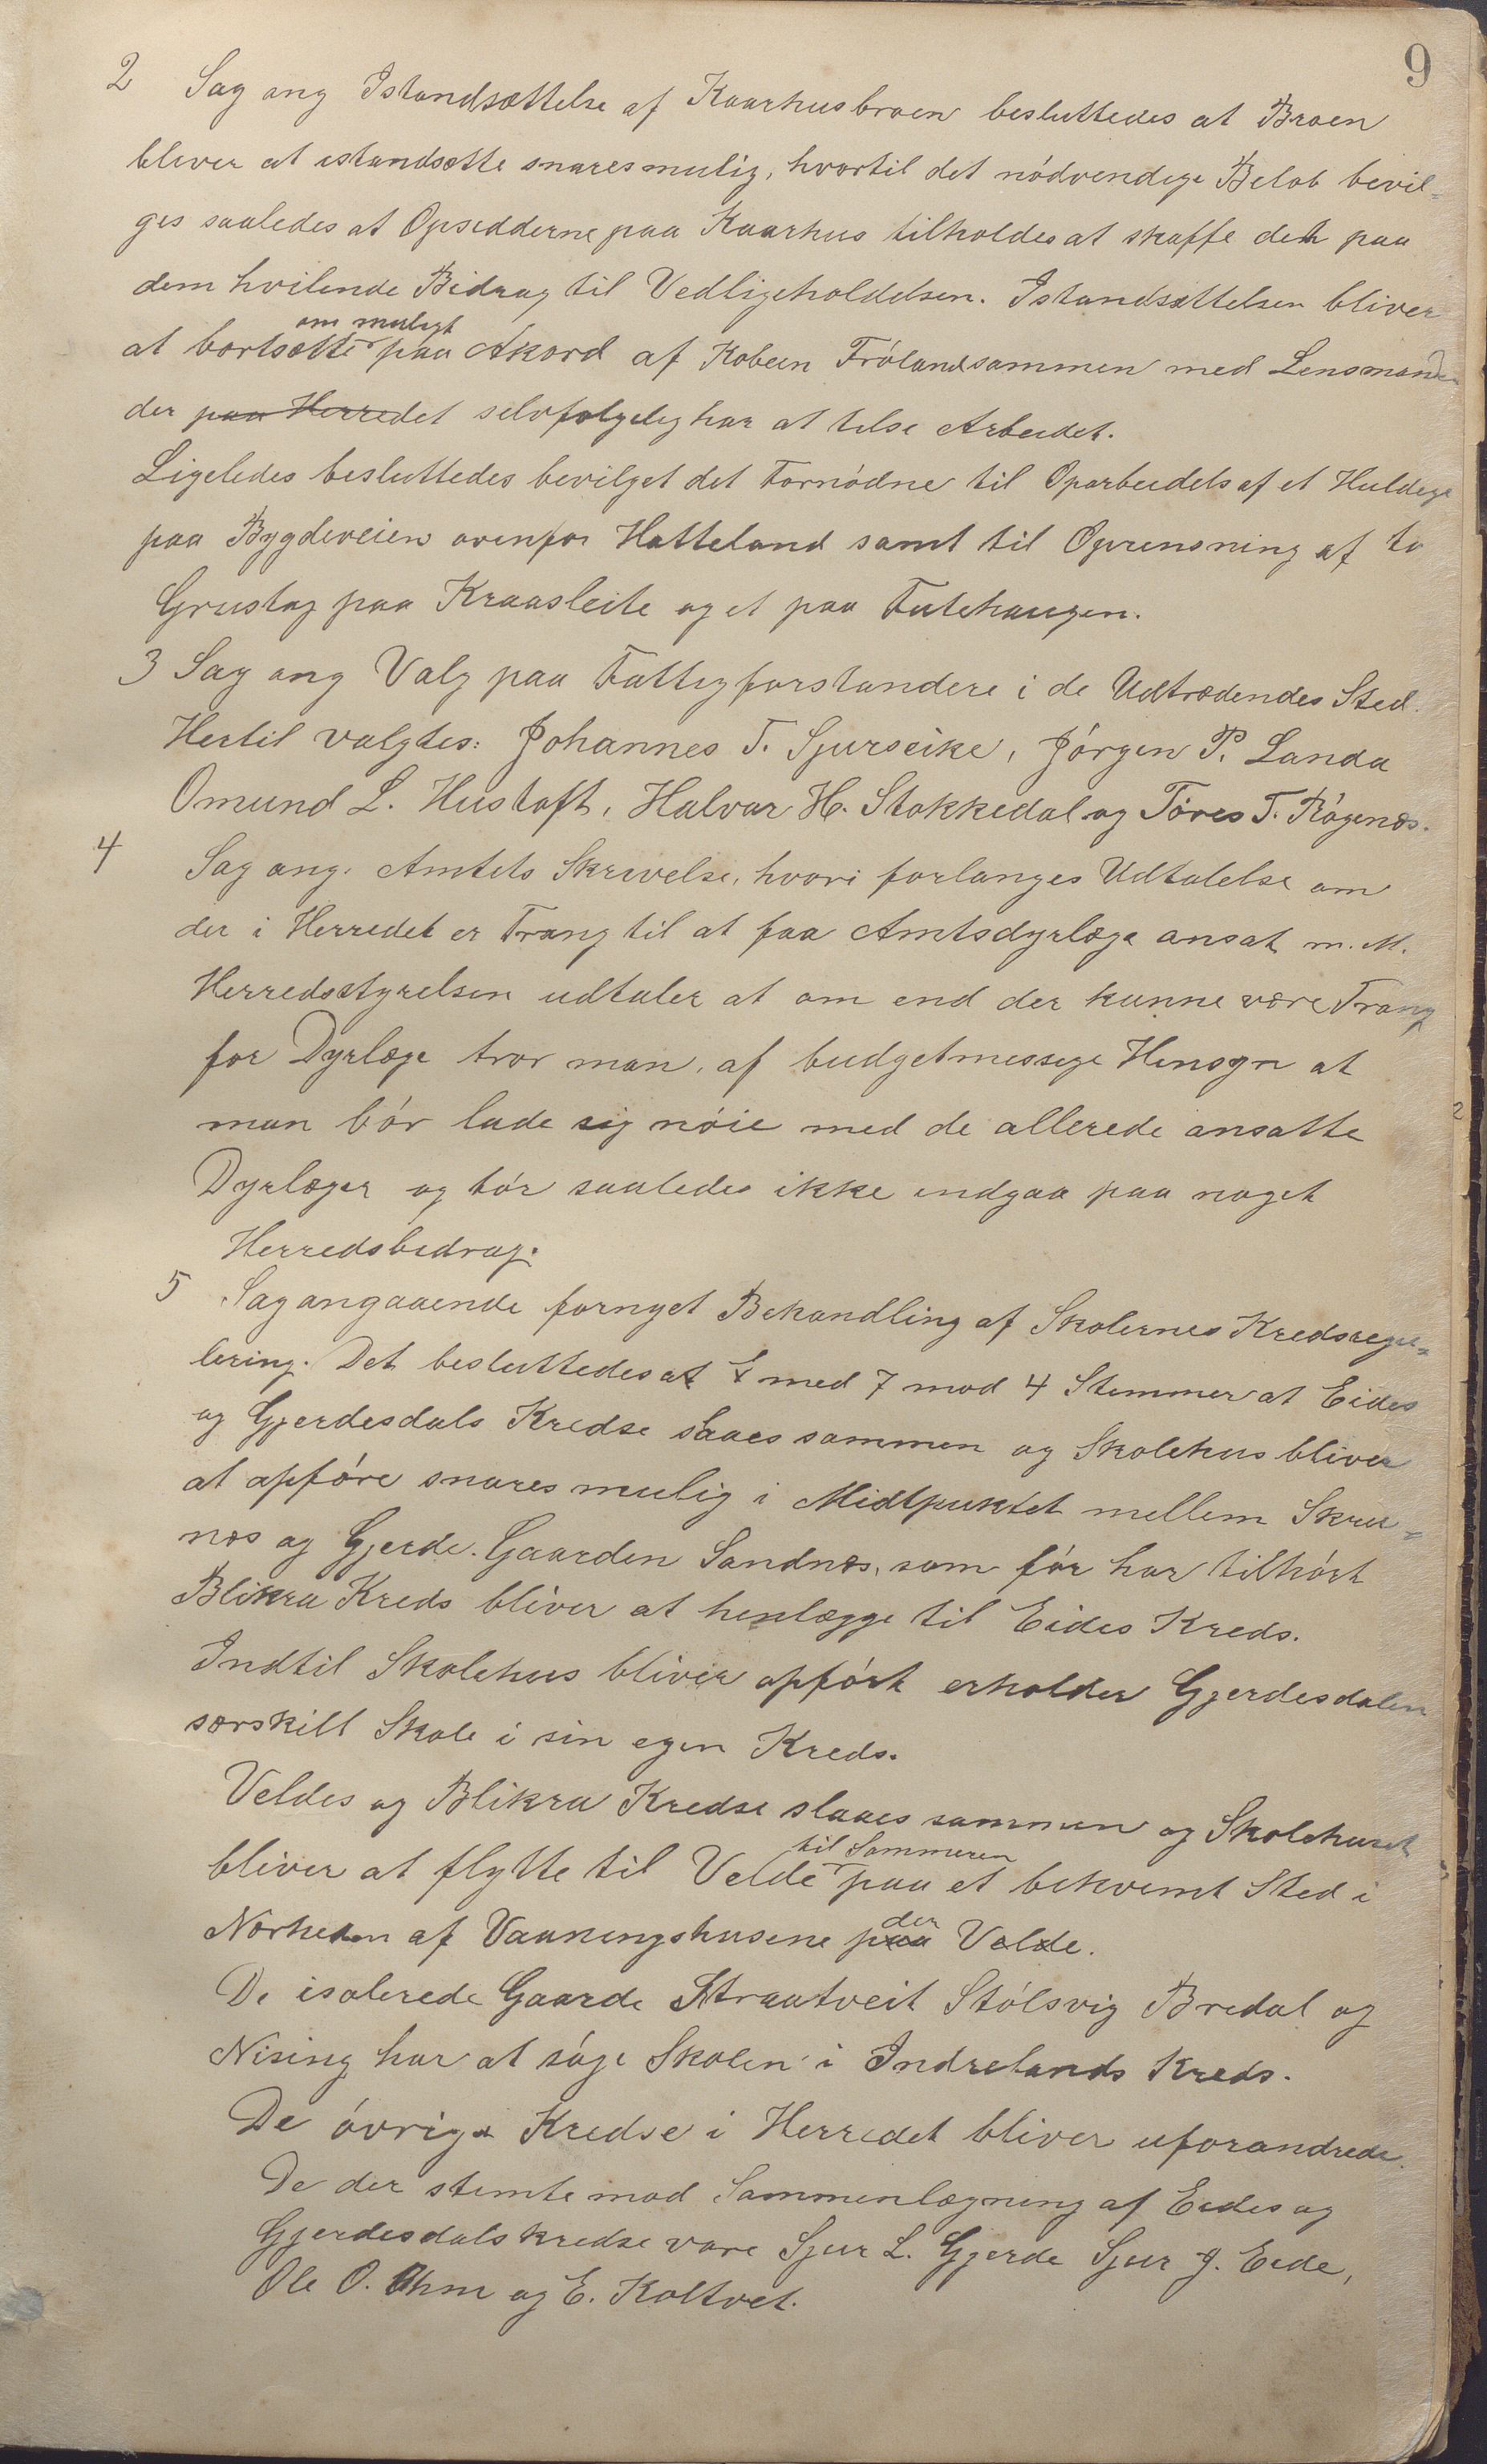 9
2 Sag ang Istandsættelse af Kaarhusbroen besluttedes at Broen
bliver at istandsætte snaresmulig, hvortil det nódvendige Beløb bevil=
ges saaledes at Opsidderne paa Kaarhus tilholdes at skaffe det paa
dem hvilende Bidrag til Vedligeholdelsen. Istandsættelsen bliver
om muligt
at bortsætte paa Akord af Kobein Fróland sammen med Lensmanden
der paa Herredet selvfølgelig har at tilse Arbeidet.
Ligeledes besluttedes bevilget det Fornódne til Oparbeidels af et Huldige
paa Bygdeveien ovenfor Hatteland samt til Oprensning af to
Grustag paa Kraasleite og et paa Futehaugen.
3 Sag ang Valg paa Fattigforstandere i de Udtrædendes Sted.
Hertil valgtes: Johannes T. Sjurseike, Jórgen P. Landa
Omund L. Hustoft, Halvar H. Stakkedal og Tóres T. Rógenæs.
4 Sag ang. Amtets Skrivelse, hvori forlanges Udtalelse om
der i Herredet er Trang til at faa Amtsdyrlæge ansat m. M.
Herredsstyrelsen udtaler at om end der kunne være Trang
for Dyrlæge tror man, af budgetmessige Hensyn at
man bór lade sig nóie med de allerede ansatte
Dyrlæger og tór saaledes ikke indgaa paa noget
Herredsbidrag.
5 Sag angaaende fornyet Behandling af Skolernes Kredsregu=
lering. Det besluttedes at med 7 mod 4 Stemmer at Eides
og Gjerdesdals Kredse slaaes sammen og Skolehus bliver
at opfóre snares mulig i Midtpuktet mellem Skru=
næs og Gjerde. Gaarden Sandnæs, som fór har tilhórt
Blikra Kreds bliver at henlægge til Eides Kreds.
Indtil Skolehus bliver opfórt erholder Gjerdesdalen
særskilt Skole i sin egen Kreds.
Veldes og Blikra Kredse slaaes sammen og Skolehuset
til Sommeren
bliver at flytte til Velde paa et bekvemt Sted i
der
Nærheden af Vaaningshusene paa Velde.
De isolerede Gaarde Straatveit Stólsvig Bredal og
Nising har at sóge Skolen i Indrelands Kreds.
De óvrige Kredse i Herredet bliver uforandrede.
De der stemte mod Sammenlægning af Eides og
Gjerdesdals kredse vare Sjur L. Gjerde Sjur J. Eide,
Ole O. Ohm og E. Koltvet.